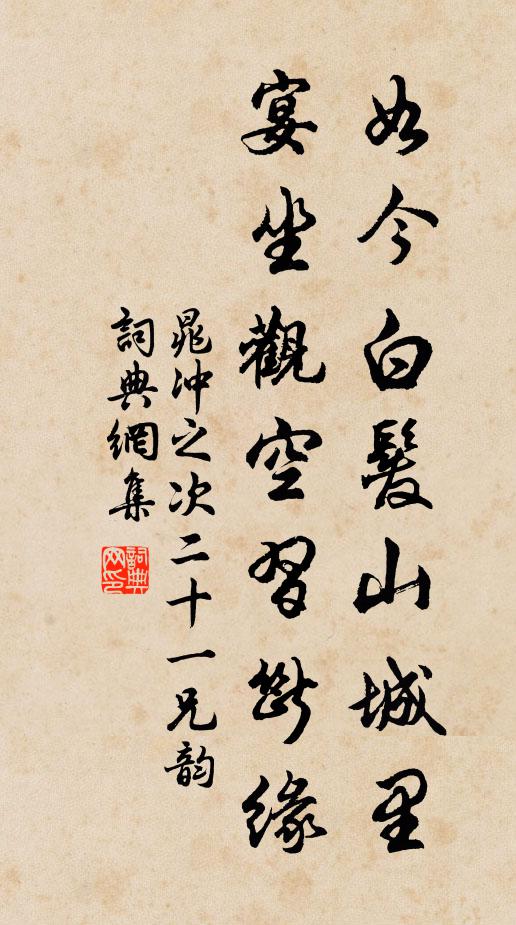 如今白髮山城里
宴坐觀空習斷緣
晁沖之次二十一兄韵
詞典網集
詞典网印